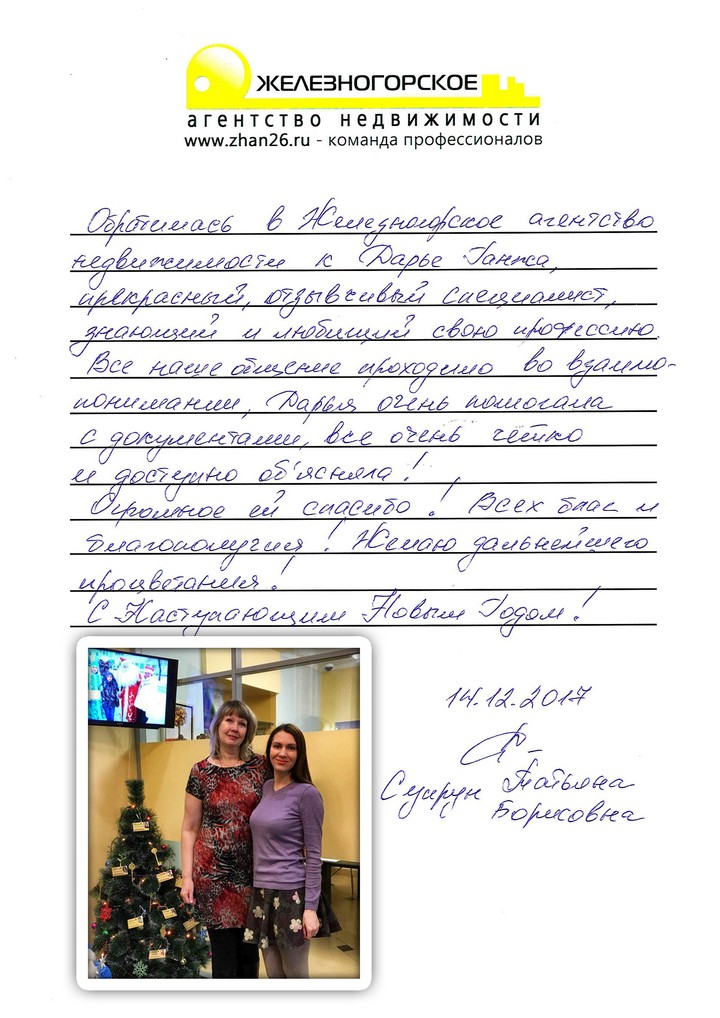 ЖЕЛЕЗНОГОРСКОЕ
агентство недвижимости
www.zhan26.ru - команда профессионалов
Обратилась в Железногорское агентство
недвижимости к Дарье Ганжа,
прекрасный, отзывчивый специалист,
знающий и любищий свою профессию.
Все наше общение проходило во взаимо-
понимании, Дарья очень помогала
с документами, все очень четко
и доступно об'ясняла!
Огромное ей спасибо! Всех благ и
благополучия! Желаю дальнейшего
процветания!
С Наступающим Новым Годом!
14.12.2017
Татьяна
Борисовна